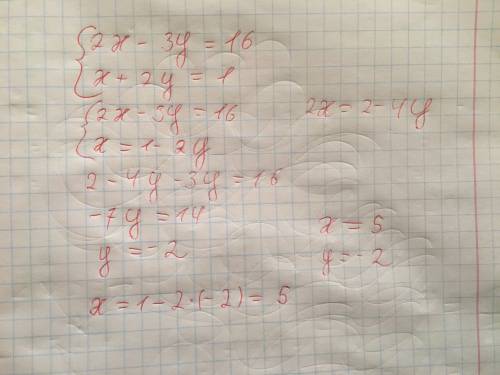 2x - 3y = 16
x + 2y = 1
2x - 3y = 16
x = 1 - 2y
2x = 2 - 4y
2 - 4y - 3y = 16
-7y = 14
y = -2
x = 1 - 2·(-2) = 5
x = 5
y = -2